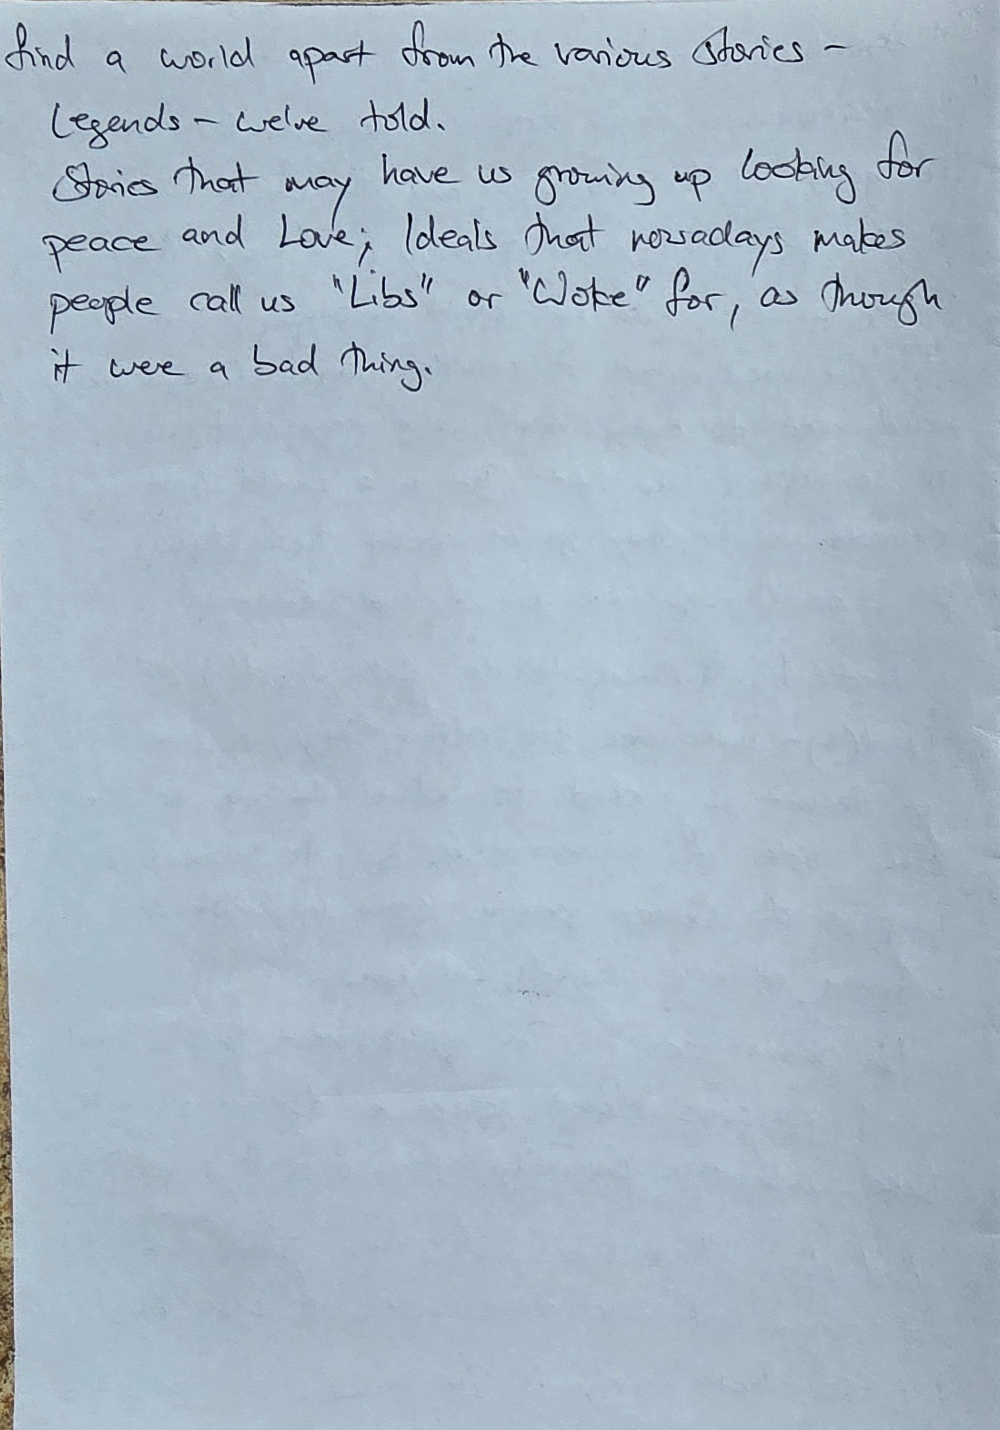 find a world apart from the various stories -
Legends - we've told.
Stories that may have us growing up looking for
peace and Love; Ideals that nowadays makes
people call us "Libs" or "Woke" for, as though
it were a bad thing.